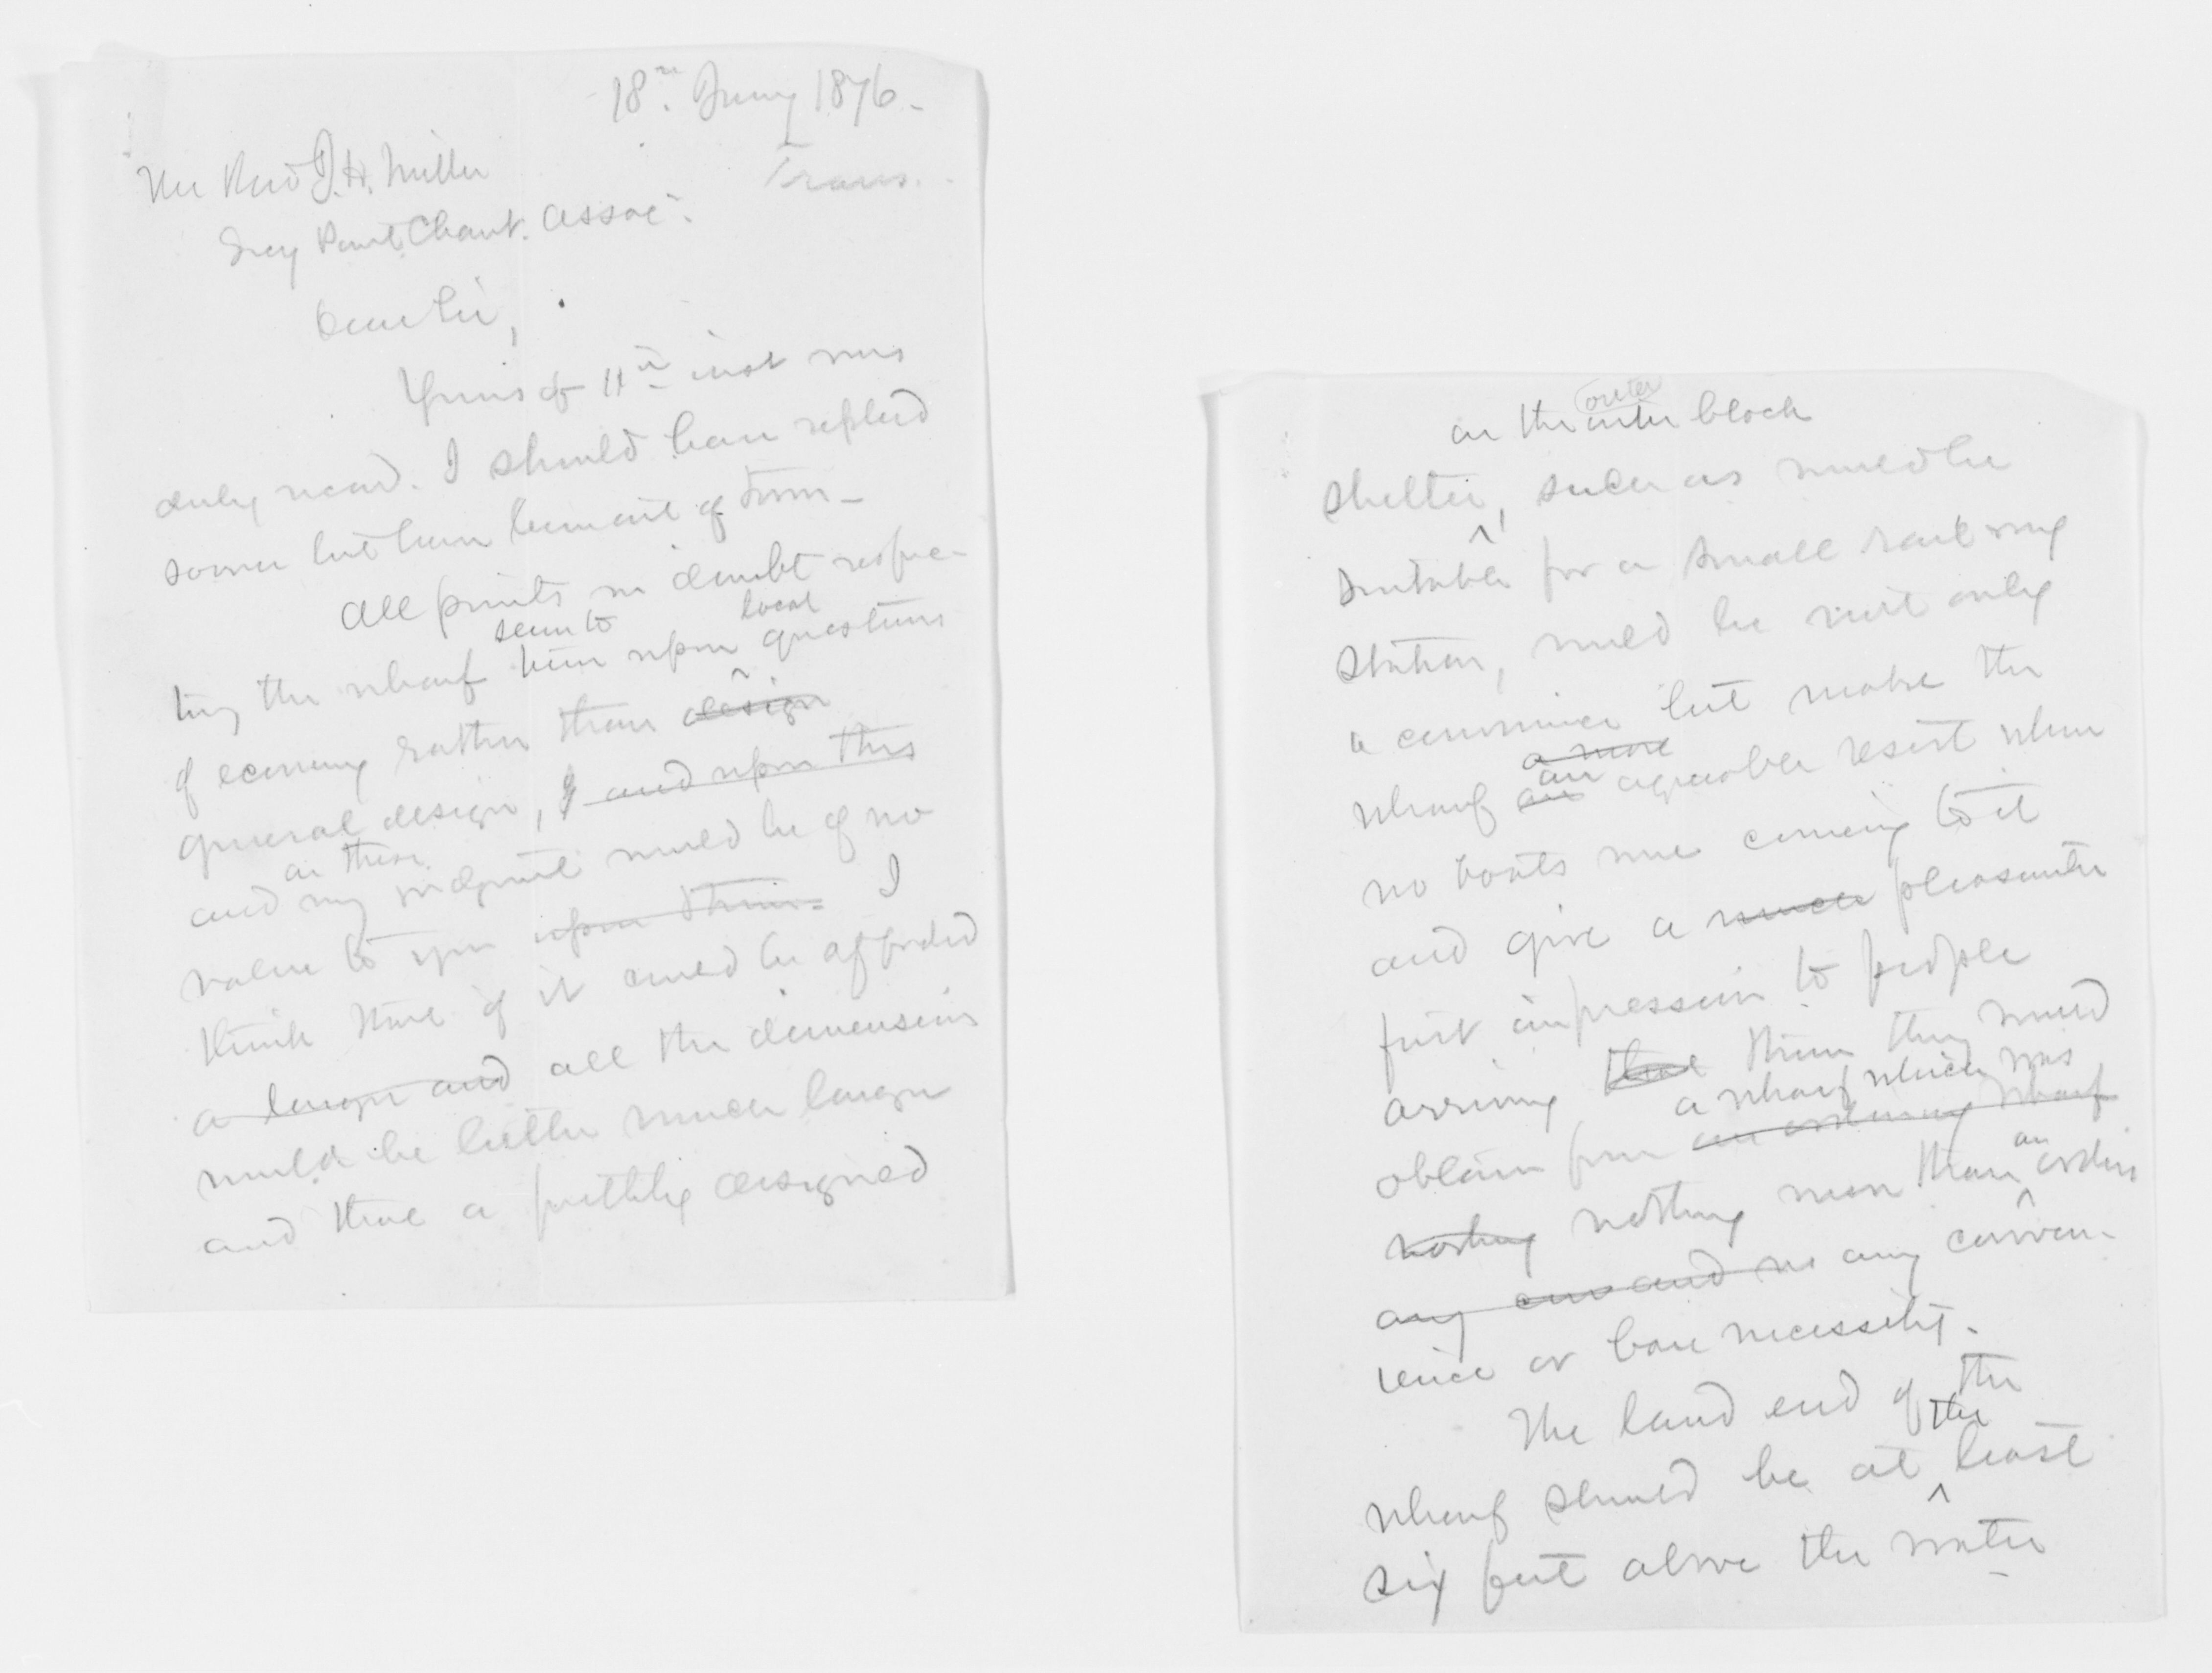 18th Jany 1876.
Trans.
The Revd J. H. Miller
Chaut. Assoc.
Dear Sir,
Yours of 11th inst was
duly recd. I should have replied
sooner but have been out of town.
All points in doubt respec-
seem to local
ting the wharf turn upon questions
of economy rather than design
general design, & and upon this
on these
and my judgmt would be of no
value to you upon them. I
think that if it could be afforded
a larger and all the dimensions
would be better much larger
and that a prettily designed
outer
on the outer block
shelter, such as would be
suitable for a small railway
station, would be not only
a convenience but make the
a more
wharf an an agreeable resort when
no boats were coming to it
and give a much pleasanter
first impression to people
arriving that than they would
a wharf which was
obtain from an ordinary wharf
an
nothing nothing more than ordin
any con and no any conven-
ience or bare necessity.
The land end of the
the
wharf should be at least
six feet above the water